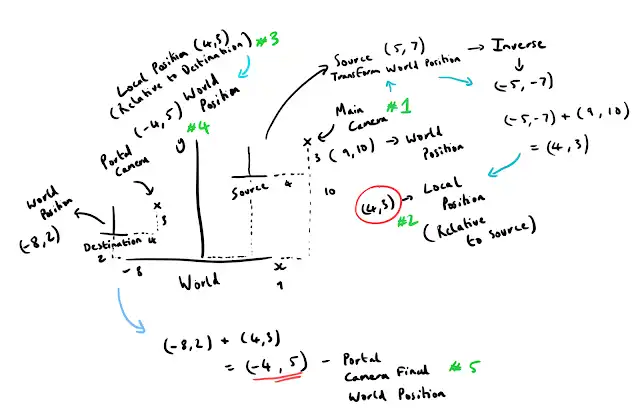 Local Position (4,3) #3
(Relative to Destination)
(-4, 5) World
Position
#4
Source (5, 7) → Inverse
Transform World Position
(-5, -7)
(-5,-7) + (9, 10)
= (4, 3)
Main
Camera #1
(9,10) → World
Position
3
10
(4,3) → Local
Position
#2
(Relative
to source)
Portal
Camera
World
Position
(-8, 2)
y
Source
4
x
x
3
Destination
4
2
-8
x
9
World
(-8,2) + (4,3)
= (-4, 5) - Portal
Camera Final #5
World Position